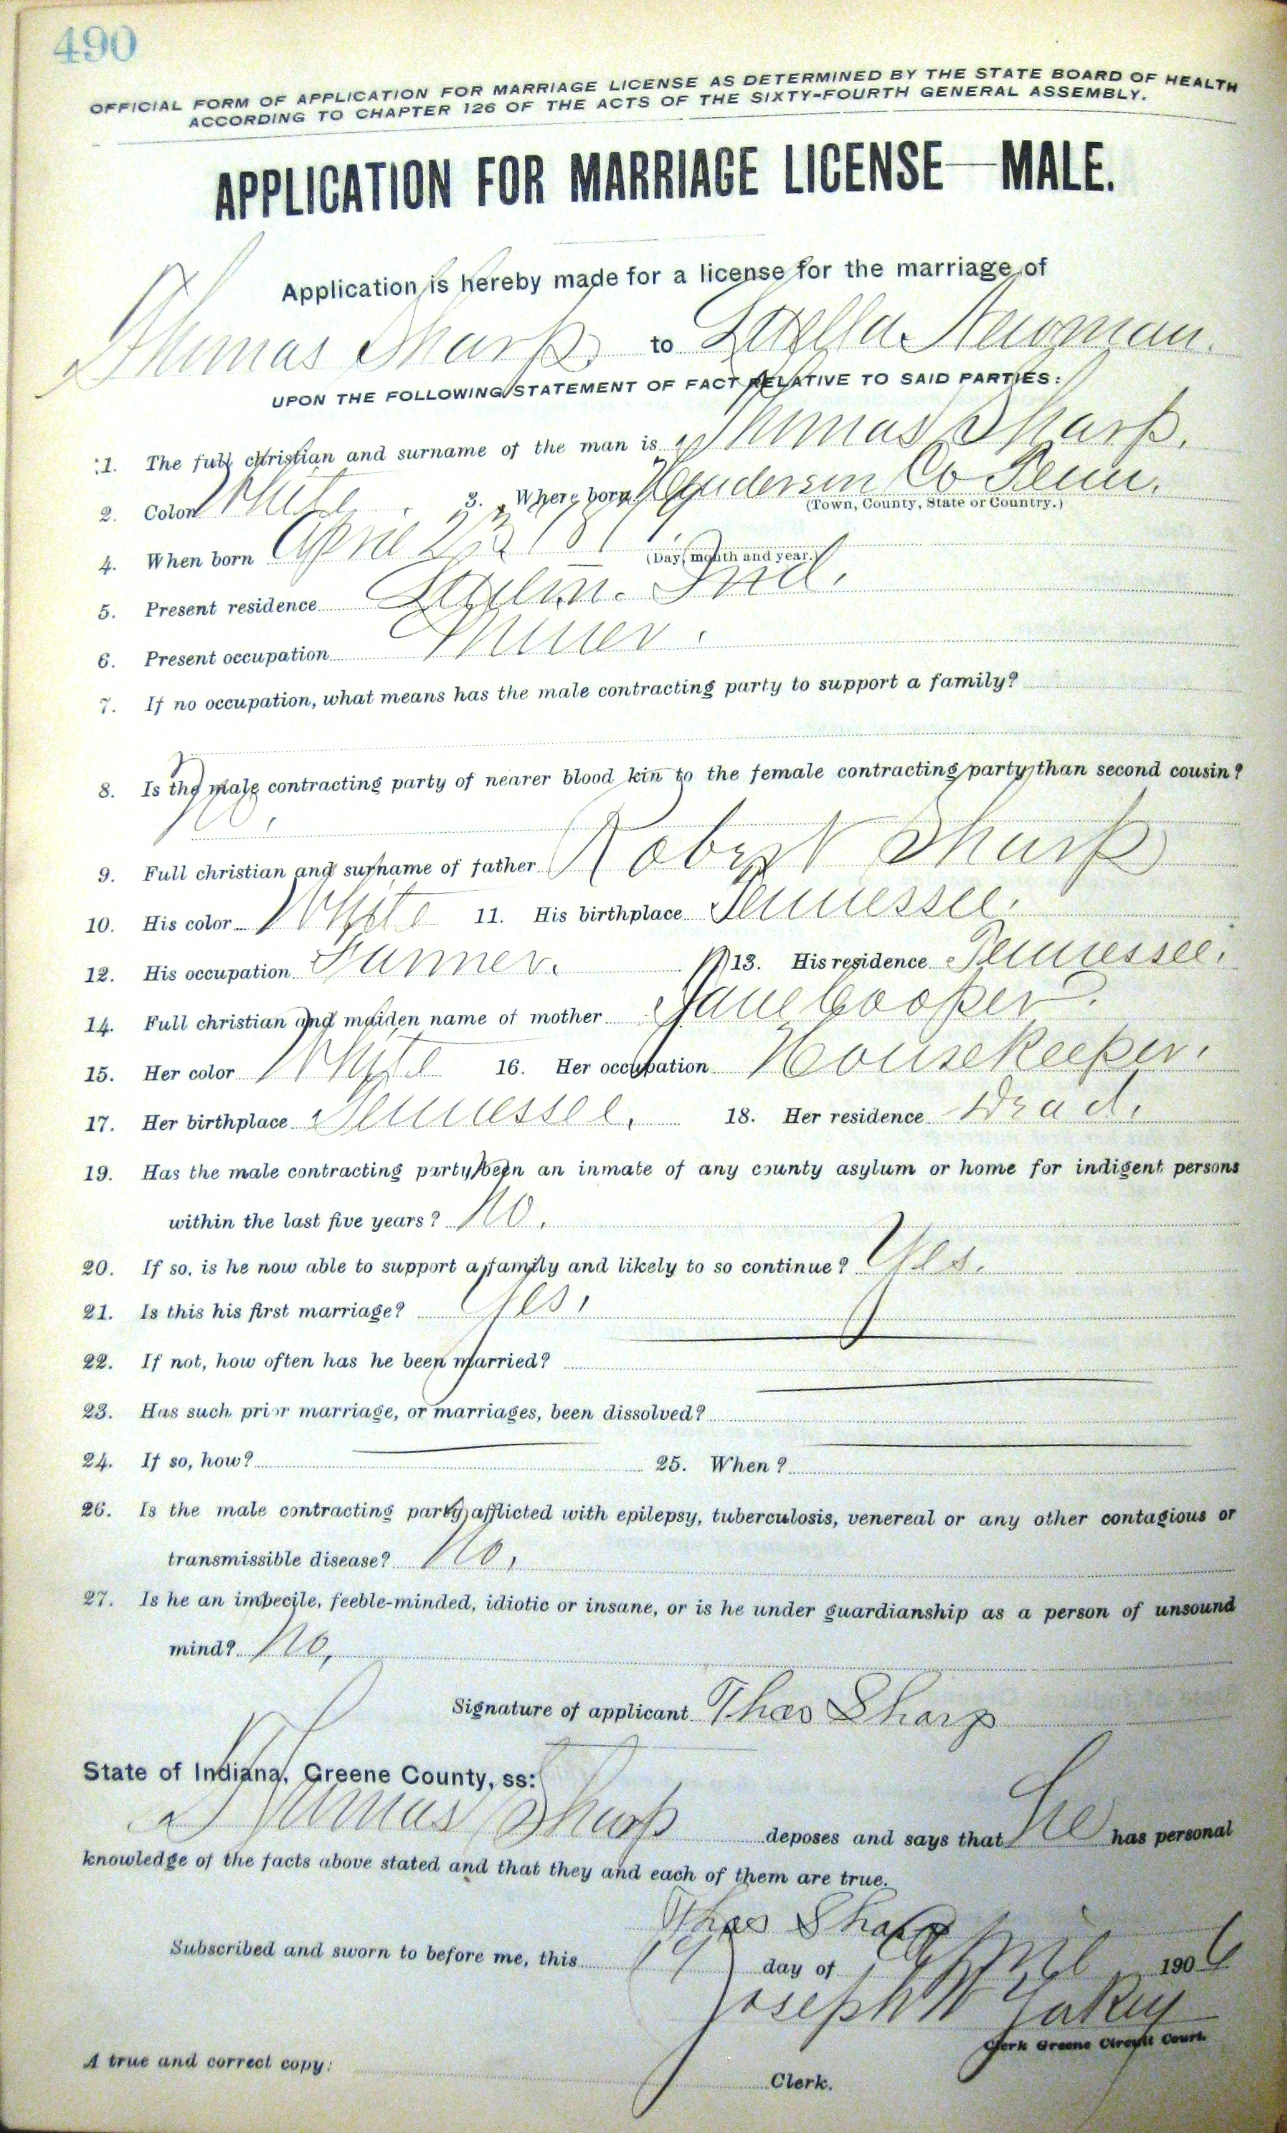 490
OFFICIAL FORM OF APPLICATION FOR MARRIAGE LICENSE AS DETERMINED BY THE STATE BOARD OF HEALTH
ACCORDING TO CHAPTER 126 OF THE ACTS OF THE SIXTY-FOURTH GENERAL ASSEMBLY.
APPLICATION FOR MARRIAGE LICENSE—MALE.
Application is hereby made for a license for the marriage of
Thomas Sharp to Luella Newman.
UPON THE FOLLOWING STATEMENT OF FACT RELATIVE TO SAID PARTIES:
1. The full christian and surname of the man is Thomas Sharp.
2. Color White 3. Where born Henderson Co Tenn.
(Town, County, State or Country.)
4. When born April 23
(Day, month and year.)
5. Present residence Ind.
6. Present occupation Miner.
7. If no occupation, what means has the male contracting party to support a family?
8. Is the male contracting party of nearer blood kin to the female contracting party than second cousin?
No.
9. Full christian and surname of father Robert Sharp
10. His color White 11. His birthplace Tennessee.
12. His occupation Farmer. 13. His residence Tennessee.
14. Full christian and maiden name of mother Jane Cooper.
15. Her color White 16. Her occupation Housekeeper.
17. Her birthplace Tennessee. 18. Her residence Dead.
19. Has the male contracting party been an inmate of any county asylum or home for indigent persons
within the last five years? No.
20. If so, is he now able to support a family and likely to so continue? Yes.
21. Is this his first marriage? Yes.
22. If not, how often has he been married?
23. Has such prior marriage, or marriages, been dissolved?
24. If so, how? 25. When?
26. Is the male contracting party afflicted with epilepsy, tuberculosis, venereal or any other contagious or
transmissible disease? No.
27. Is he an imbecile, feeble-minded, idiotic or insane, or is he under guardianship as a person of unsound
mind? No,
Signature of applicant Thos Sharp
State of Indiana, Greene County, ss:
Thomas Sharp deposes and says that he has personal
knowledge of the facts above stated and that they and each of them are true.
Thos Sharp
Subscribed and sworn to before me, this 19 day of April 1906
Joseph W Yakey
Clerk Greene Circuit Court.
A true and correct copy: Clerk.